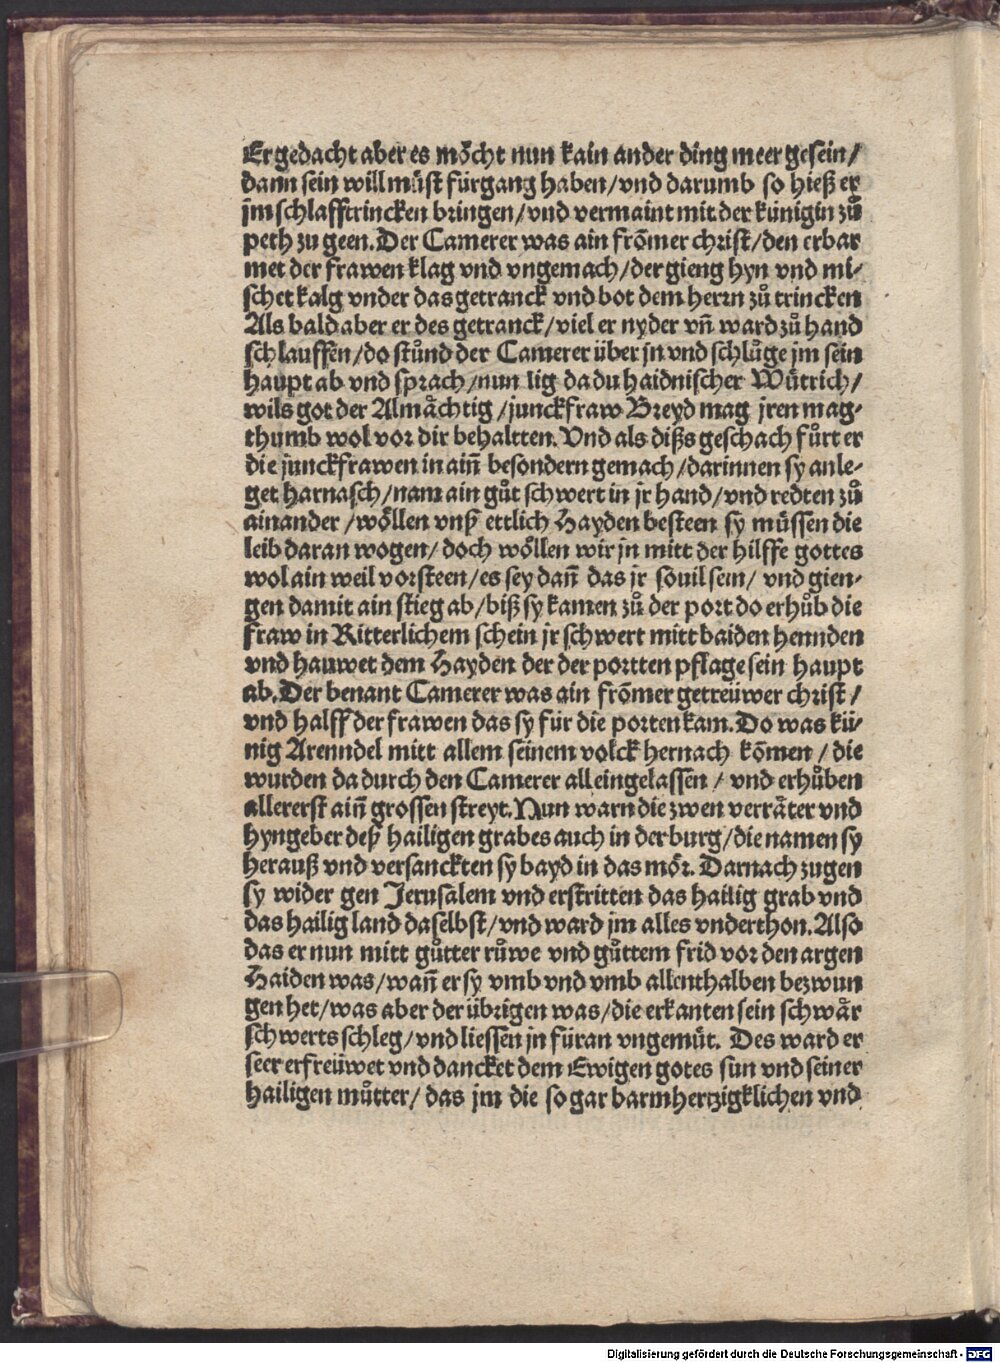 Er gedacht aber es mo̊cht nun kain ander ding meer gesein/
dann sein will můst fürgang haben/vnd darumb so hieß er
jm schlafftrincken bringen/vnd vermaint mit der künigin zů
peth zu geen. Der Camerer was ain frõmer christ/den erbar
met der frawen klag vnd vngemach/der gieng hyn vnd mi-
schet kalg vnder das getranck vnd bot dem herrn zů trincken
Als bald aber er des getranck/viel er nyder vn̄ ward zů hand
schlauffen/do stůnd der Camerer über jn vnd schlůge jm sein
haupt ab vnd sprach/nun lig da du haidnischer Wütrich/
wils got der Almåchtig/junckfraw Breyd mag jren mag-
thumb wol vor dir behaltten. Vnd als dißs geschach fůrt er
die junckfrawen in ain̄ besondern gemach/darinnen sy anle-
get harnasch/nam ain gůt schwert in jr hand/vnd redten zů
ainander/wo̊llen vnß ettlich Hayden besteen sy müssen die
leib daran wogen/doch wo̊llen wir jn mitt der hilffe gottes
wol ain weil vorsteen/es sey dan̄ das jr souil sein/ vnd gien-
gen damit ain stieg ab/biß sy kamen zů der port do erhůb die
fraw in Ritterlichem schein jr schwert mitt baiden hennden
vnd hauwet dem Hayden der der portten pflage sein haupt
ab. Der benant Camerer was ain frõmer getreüwer christ/
vnd halff der frawen das sy für die porten kam. Do was kü-
nig Arenndel mitt allem seinem volck hernach kõmen/die
wurden da durch den Camerer all eingelassen/ vnd erhůben
allererst ain̄ grossen streyt. Nun warn die zwen verråter vnd
hyngeber deß hailigen grabes auch in der burg/die namen sy
herauß vnd versanckten sy bayd in das mo̊r. Darnach zugen
sy wider gen Jerusalem vnd erstritten das hailig grab vnd
das hailig land daselbst/vnd ward jm alles vnderthon. Also
das er nun mitt gůtter růwe vnd gůttem frid vor den argen
Haiden was/wan̄ er sy vmb vnd vmb allenthalben bezwun
gen het/was aber der übrigen was/die erkanten sein schwår
schwerts schleg/vnd liessen jn füran vngemüt. Des ward er
seer erfreüwet vnd dancket dem Ewigen gotes sun vnd seiner
hailigen můtter/das jm die so gar barmhertzigklichen vnd
Digitalisierung gefördert durch die Deutsche Forschungsgemeinschaft - DFG